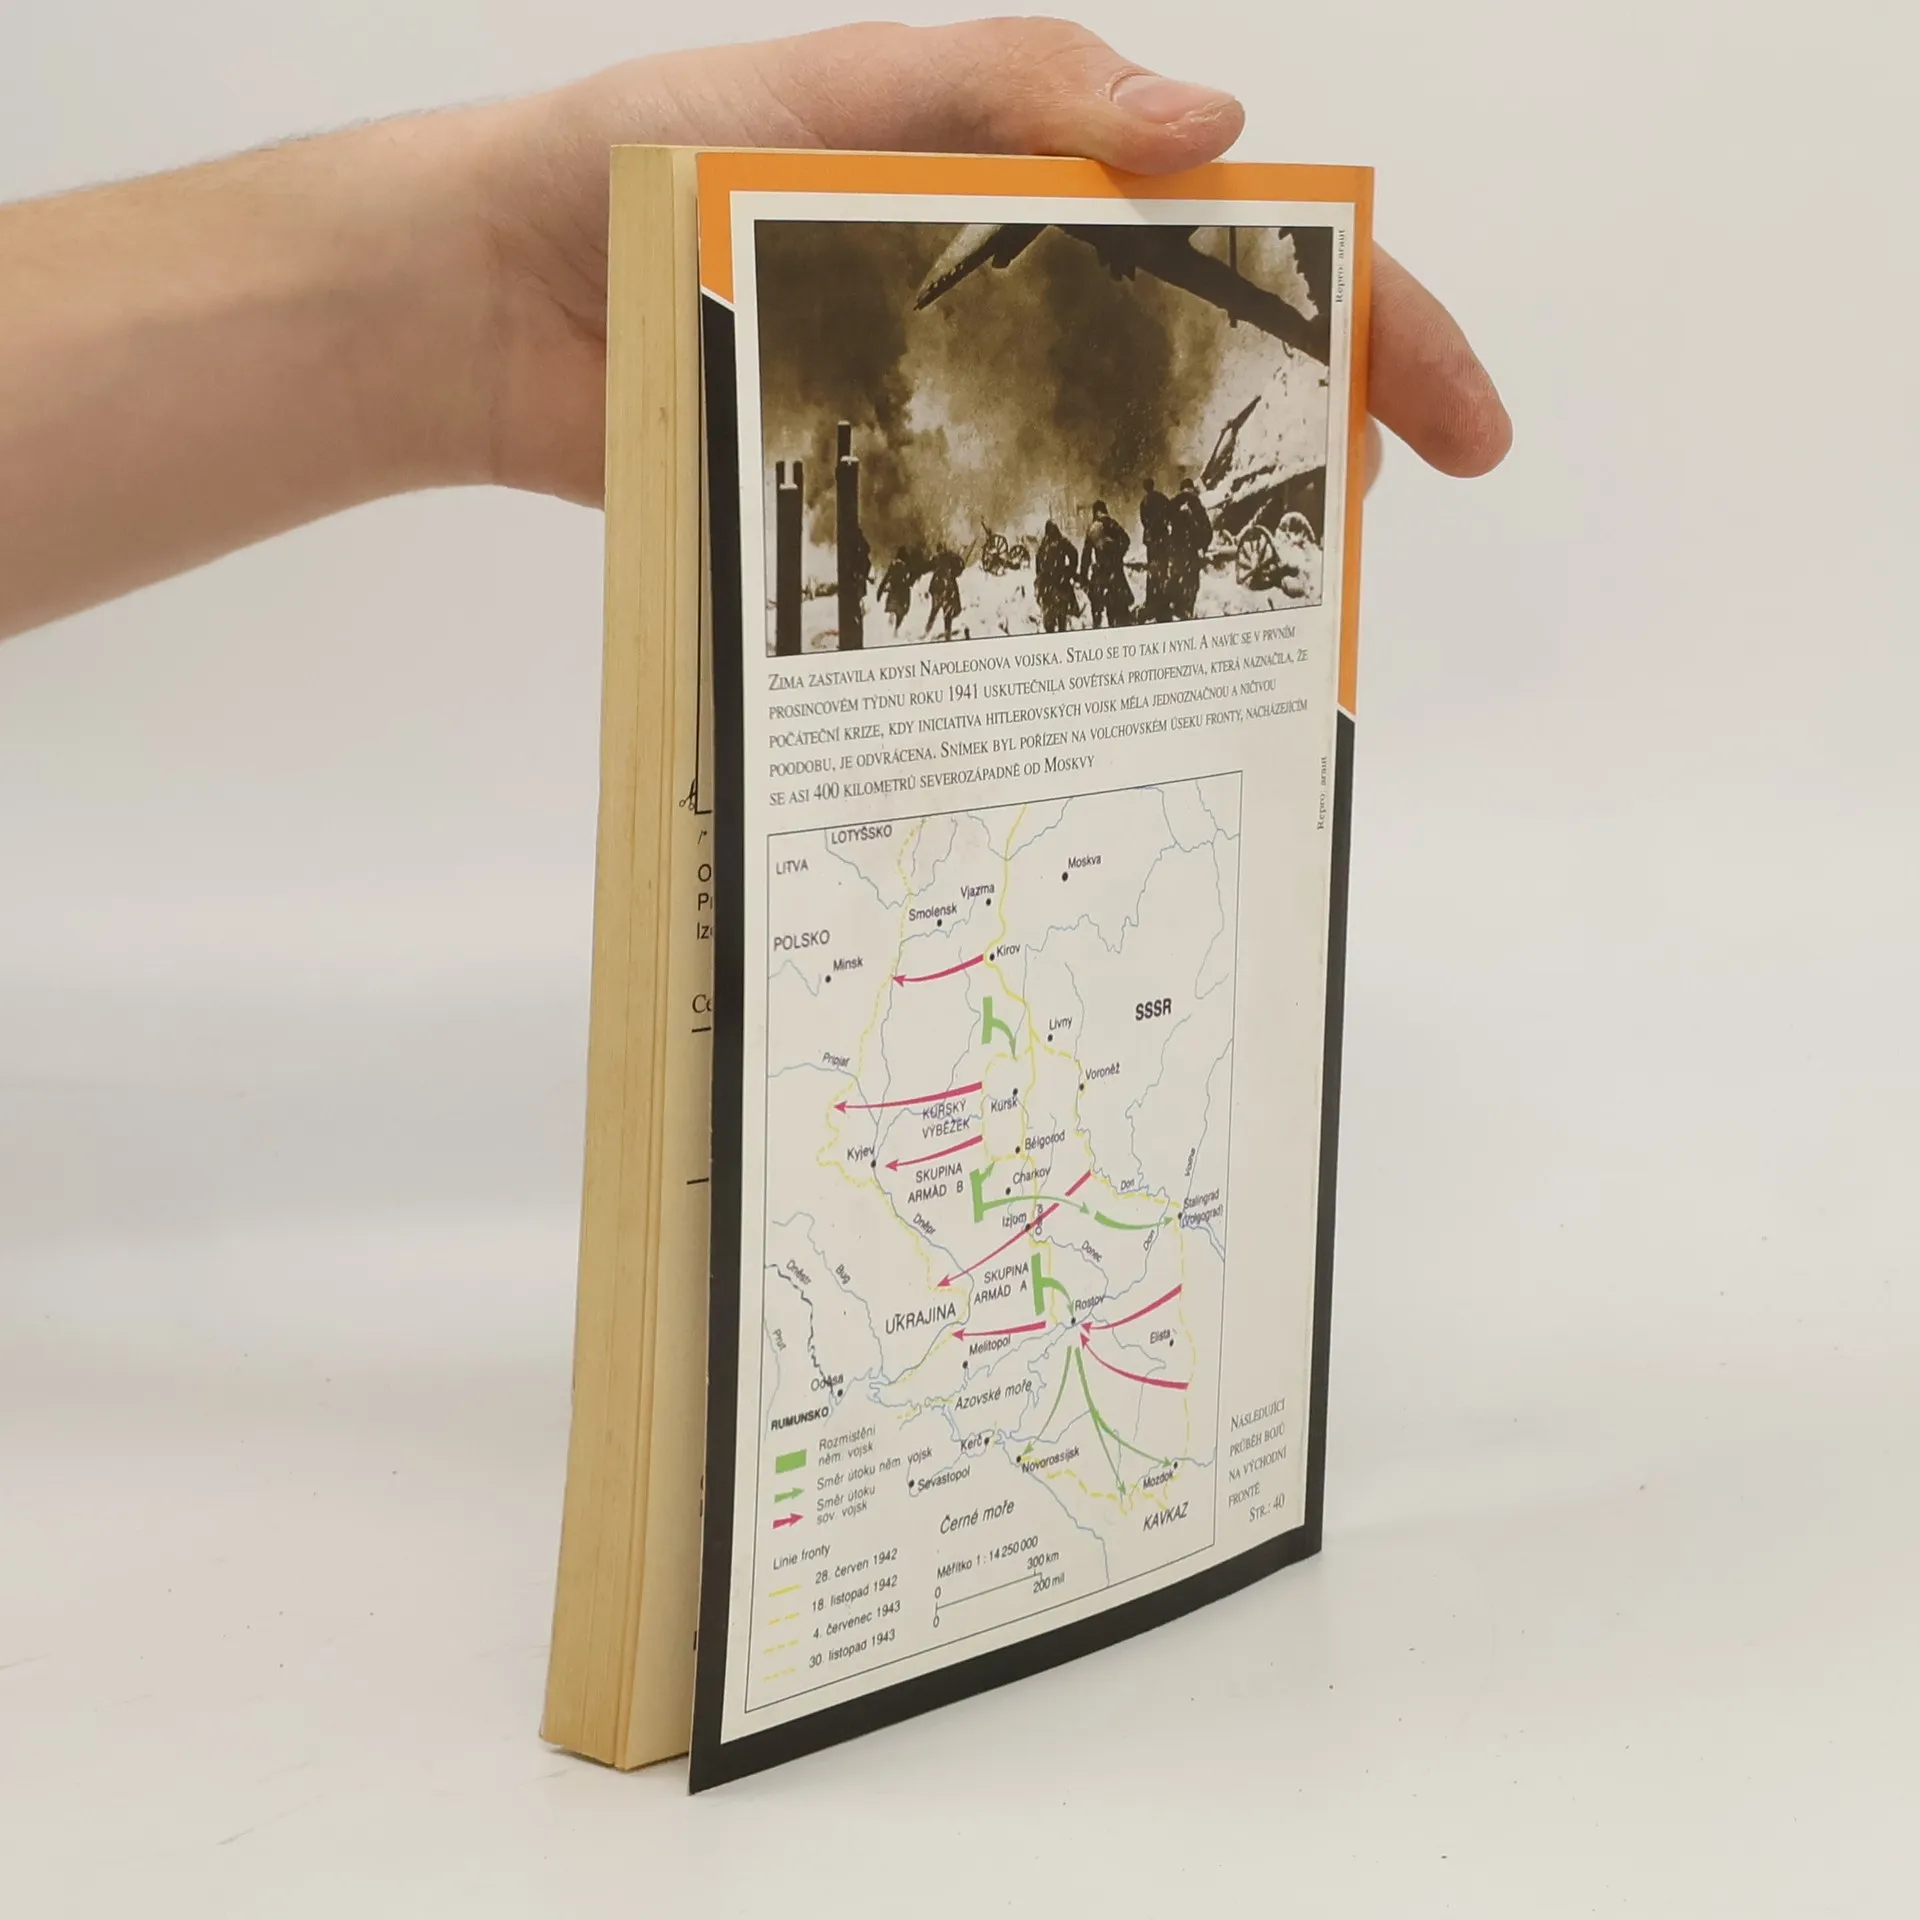 Repro: araut
Zima zastavila kdysi Napoleonova vojska. Stalo se to tak i nyní. A navíc se v prvním
prosincovém týdnu roku 1941 uskutečnila sovětská protiofenziva, která naznačila, že
počáteční krize, kdy iniciativa hitlerovských vojsk měla jednoznačnou a ničivou
poodobu, je odvrácena. Snímek byl pořízen na volchovském úseku fronty, nacházejícím
se asi 400 kilometrů severozápadně od Moskvy
Repro: araut
LOTYŠSKO
LITVA
Moskva
Vjazma
Smolensk
POLSKO
Minsk
Kirov
SSSR
Livny
Pripjať
Voroněž
KURSKÝ
VÝBĚŽEK
Kursk
Kyjev
Bělgorod
SKUPINA
ARMÁD B
Charkov
Don
Volha
Stalingrad
(Volgograd)
Izjum
Dněpr
Doněc
Don
Dněstr
Bug
SKUPINA
ARMÁD A
UKRAJINA
Rostov
Elista
Prut
Melitopol
Oděsa
Azovské moře
RUMUNSKO
Kerč
Novorossijsk
Mozdok
Sevastopol
KAVKAZ
Černé moře
Rozmístění
něm. vojsk
Směr útoku něm. vojsk
Směr útoku
sov. vojsk
Linie fronty
28. červen 1942
18. listopad 1942
4. červenec 1943
30. listopad 1943
Měřítko 1 : 14 250 000
0 300 km
0 200 mil
Následující
průběh bojů
na východní
frontě
Str.: 40
O
Iz